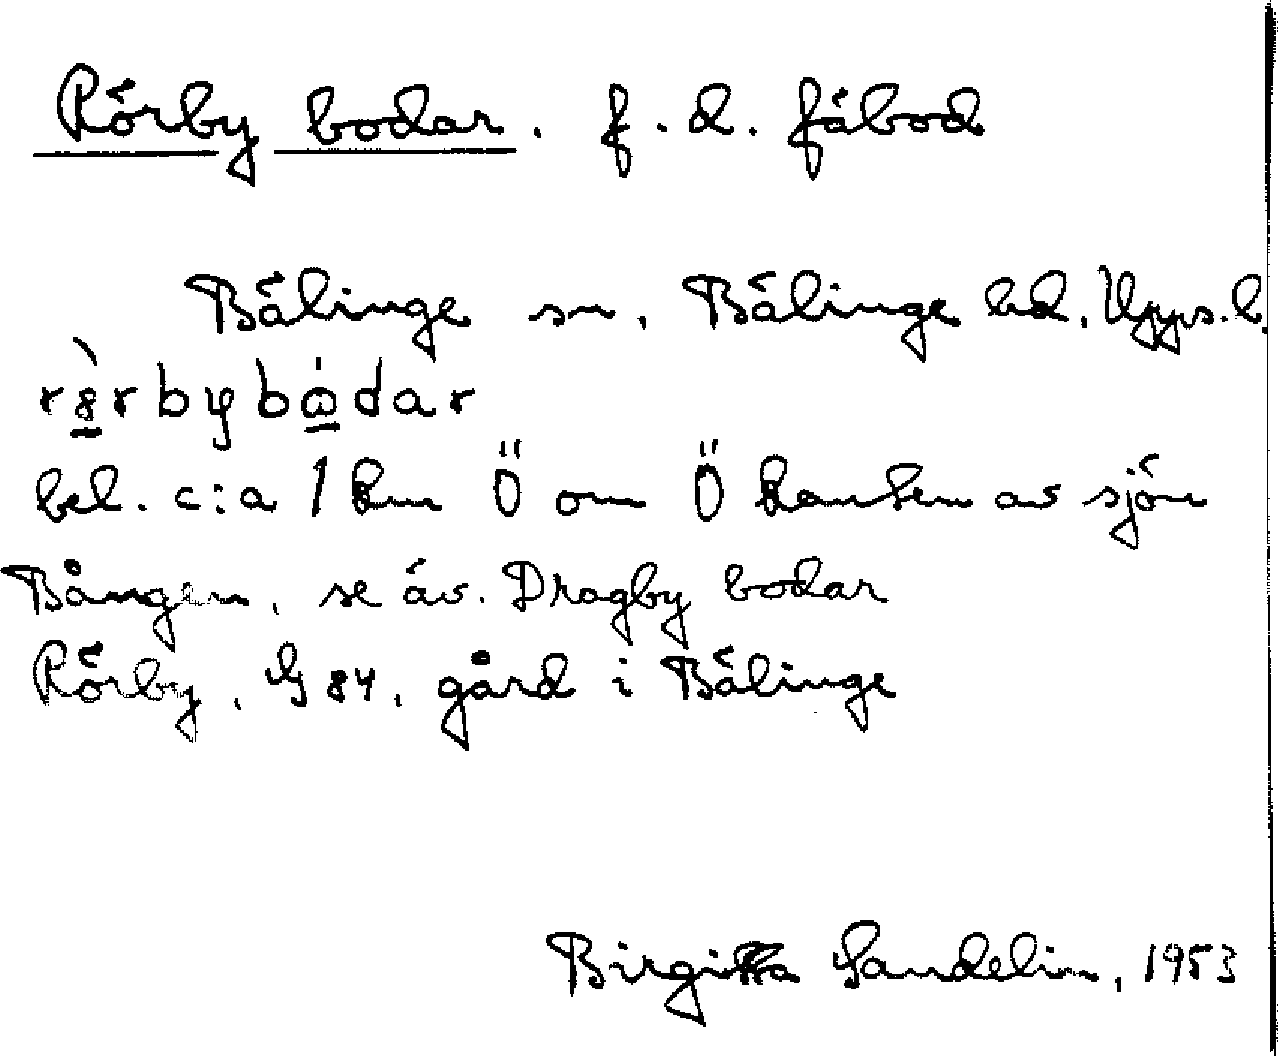 Rörby bodar. f. d. fäbod
Bälinge sn. Bälinge hd. Upps. l.
bel. c:a 1 km Ö om Ö kanten av sjön
Bången, se äv. Dragby bodar
Rörby, G 84, gård i Bälinge
Birgitta Sandelin, 1953